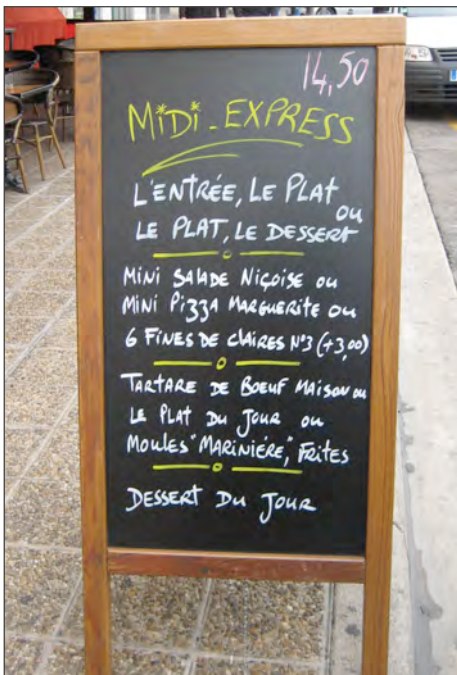 14,50
MiDi-EXPRESS
L'ENTRÉE, LE PLAT
ou
LE PLAT, LE DESSERT
MiNi SALADE NIÇOISE ou
MiNi PIZZA MARGUERITE ou
6 FINES DE CLAIRES N°3 (+3,00)
TARTARE DE BOEUF MAISON ou
LE PLAT DU JOUR ou
MOULES "MARINIÉRE", FRITES
DESSERT DU JOUR